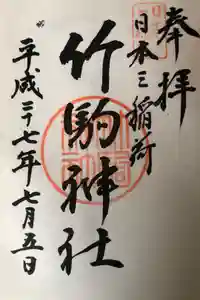 奉拝
日本三稲荷
竹駒神社
平成二十七年七月五日